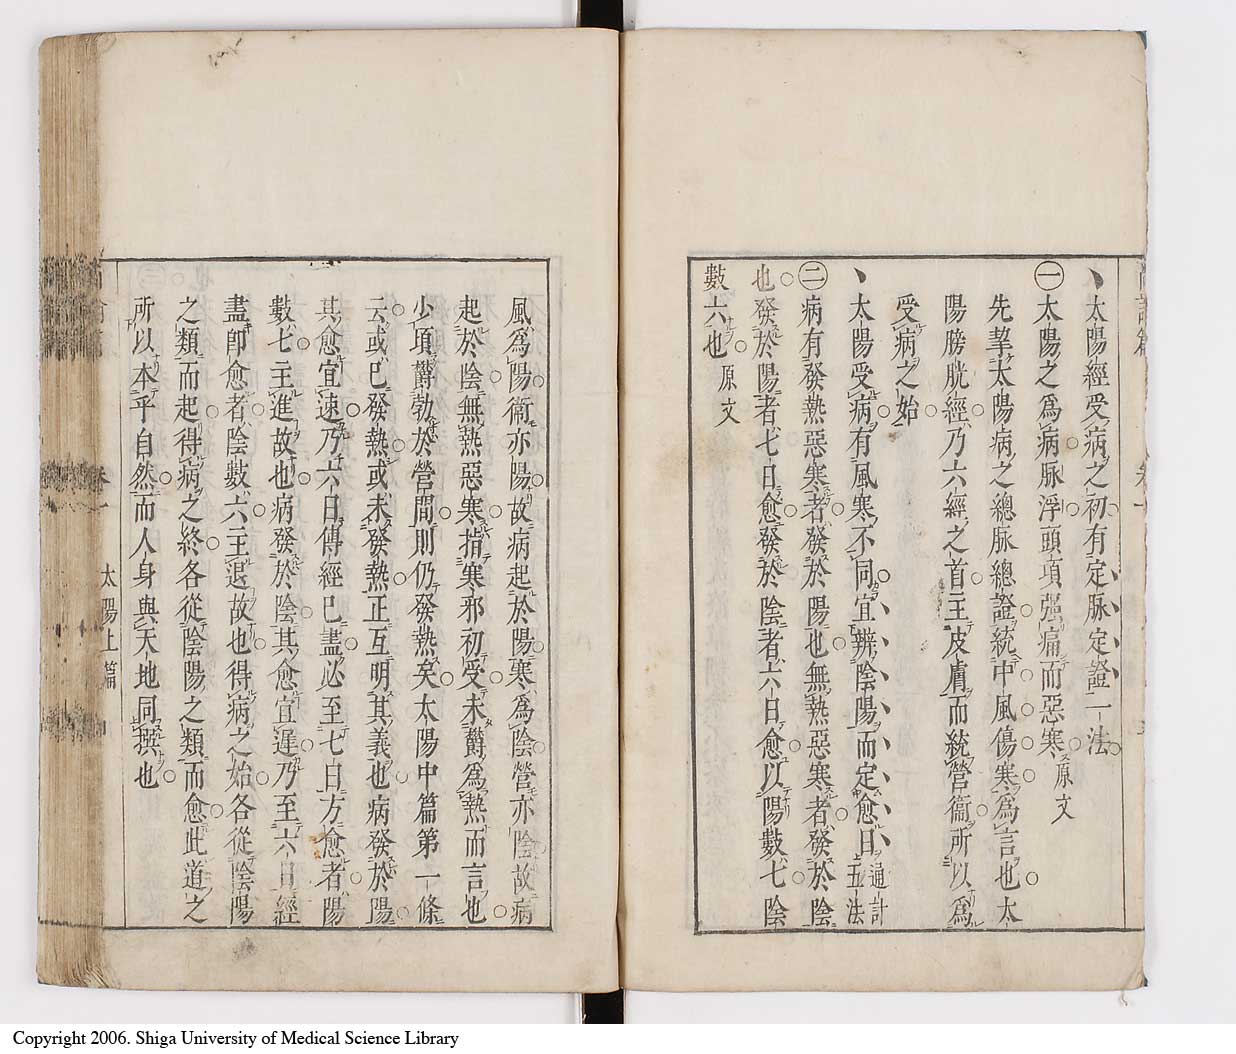 太陽經受病之初有定脉定證二法
㊀太陽之爲病脉浮頭項强痛而惡寒原文
先挈太陽病之總脉總證統中風傷寒爲言也太
陽膀胱經乃六經之首主皮膚而統營衞所以爲
受病之始
太陽受病有風寒不同宜辨陰陽而定愈日通計五法
㊁病有發熱惡寒者發於陽也無熱惡寒者發於陰
也發於陽者七日愈發於陰者六日愈以陽數七陰
數六也原文
風爲陽衞亦陽故病起於陽寒爲陰營亦陰故病
起於陰無熱惡寒指寒邪初受未欝爲熱而言也
少頃欝勃於營間則仍發熱矣太陽中篇第一條
云或已發熱或未發熱正互明其義也病發於陽
其愈宜速乃六日傳經已盡必至七日方愈者陽
數七主進故也病發於陰其愈宜遲乃至六日經
盡卽愈者陰數六主退故也得病之始各從陰陽
之類而起得病之終各從陰陽之類而愈此道之
所以本乎自然而人身與天地同撰也
卷一
太陽上篇
Copyright 2006. Shiga University of Medical Science Library